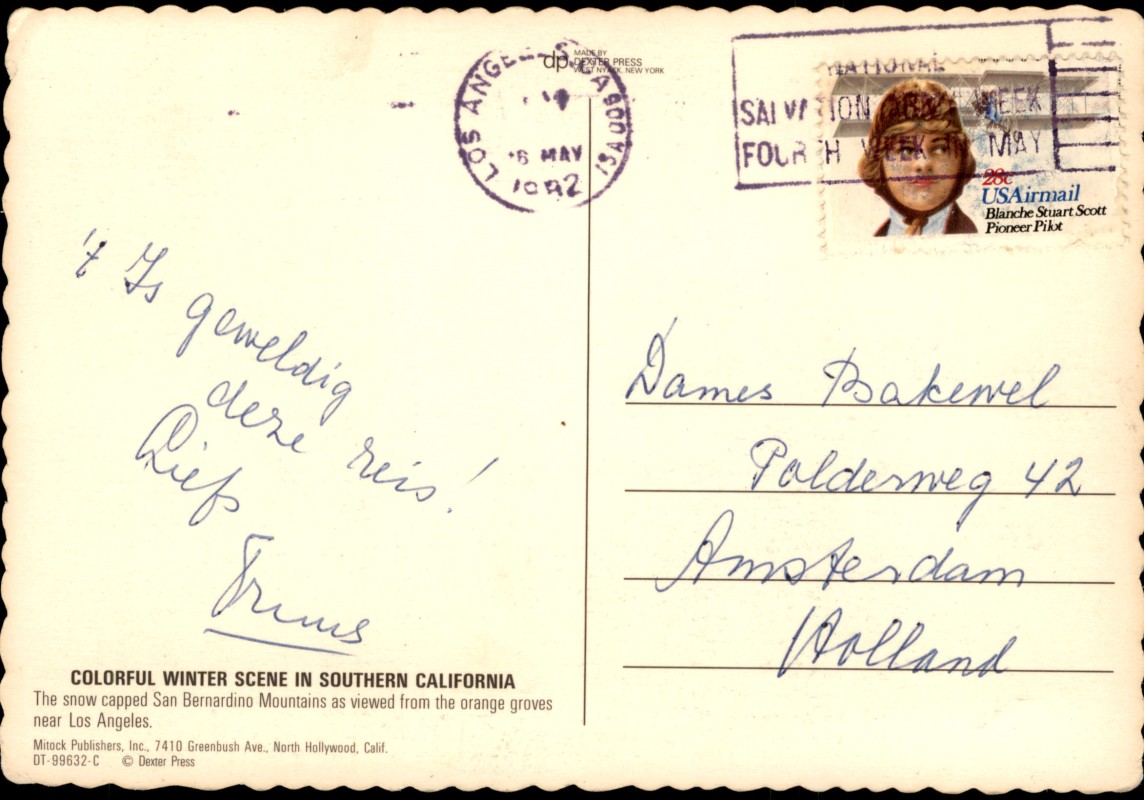 dp MADE BY
DEXTER PRESS
WEST NYACK, NEW YORK
LOS ANGELES CA 900 ISA
MAY
NATIONAL
SALVATION ARMY WEEK
FOURTH WEEK IN MAY
28c
USAirmail
Blanche Stuart Scott
Pioneer Pilot
't Is geweldig
deze reis!
Liefs
Truus
Dames Bakewel
Polderweg 42
Amsterdam
Holland
COLORFUL WINTER SCENE IN SOUTHERN CALIFORNIA
The snow capped San Bernardino Mountains as viewed from the orange groves
near Los Angeles.
Mitock Publishers, Inc., 7410 Greenbush Ave., North Hollywood, Calif.
DT-99632-C © Dexter Press